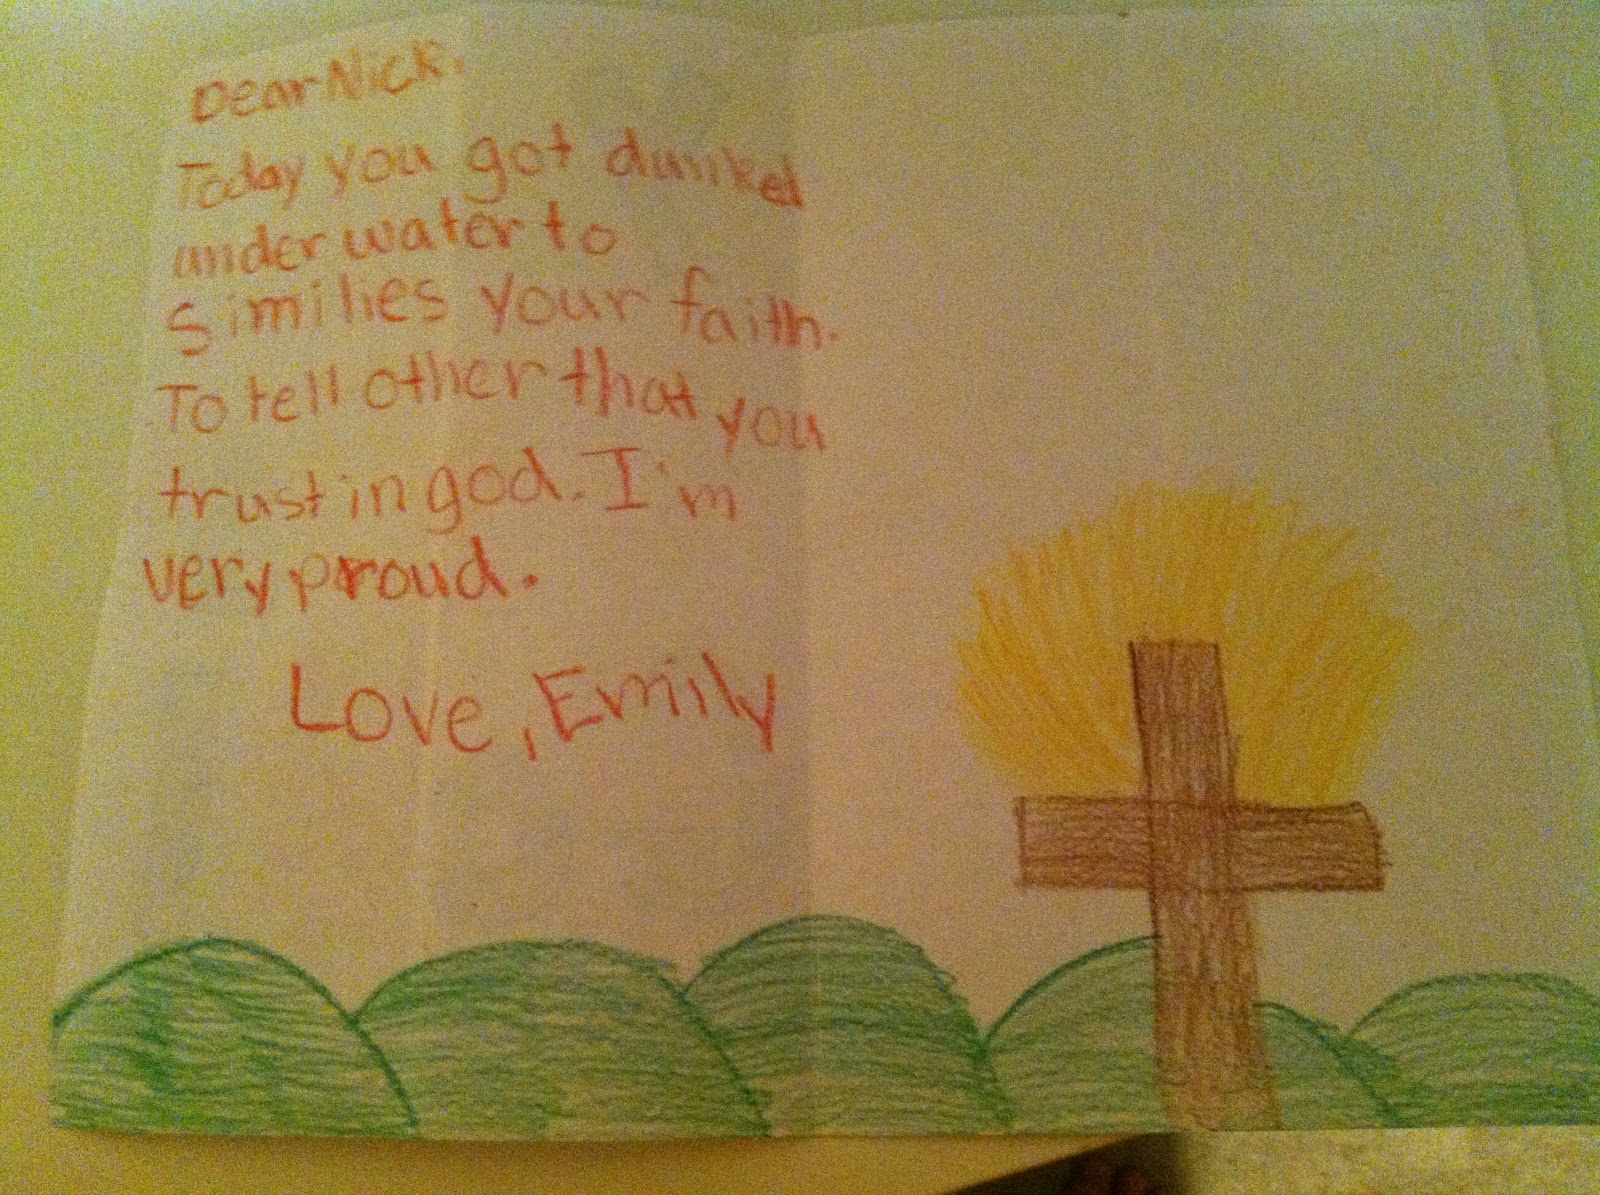 Dear Nick,
Today you got dunked
under water to
Similies your faith.
To tell other that you
trust in god. I'm
very proud.
Love, Emily